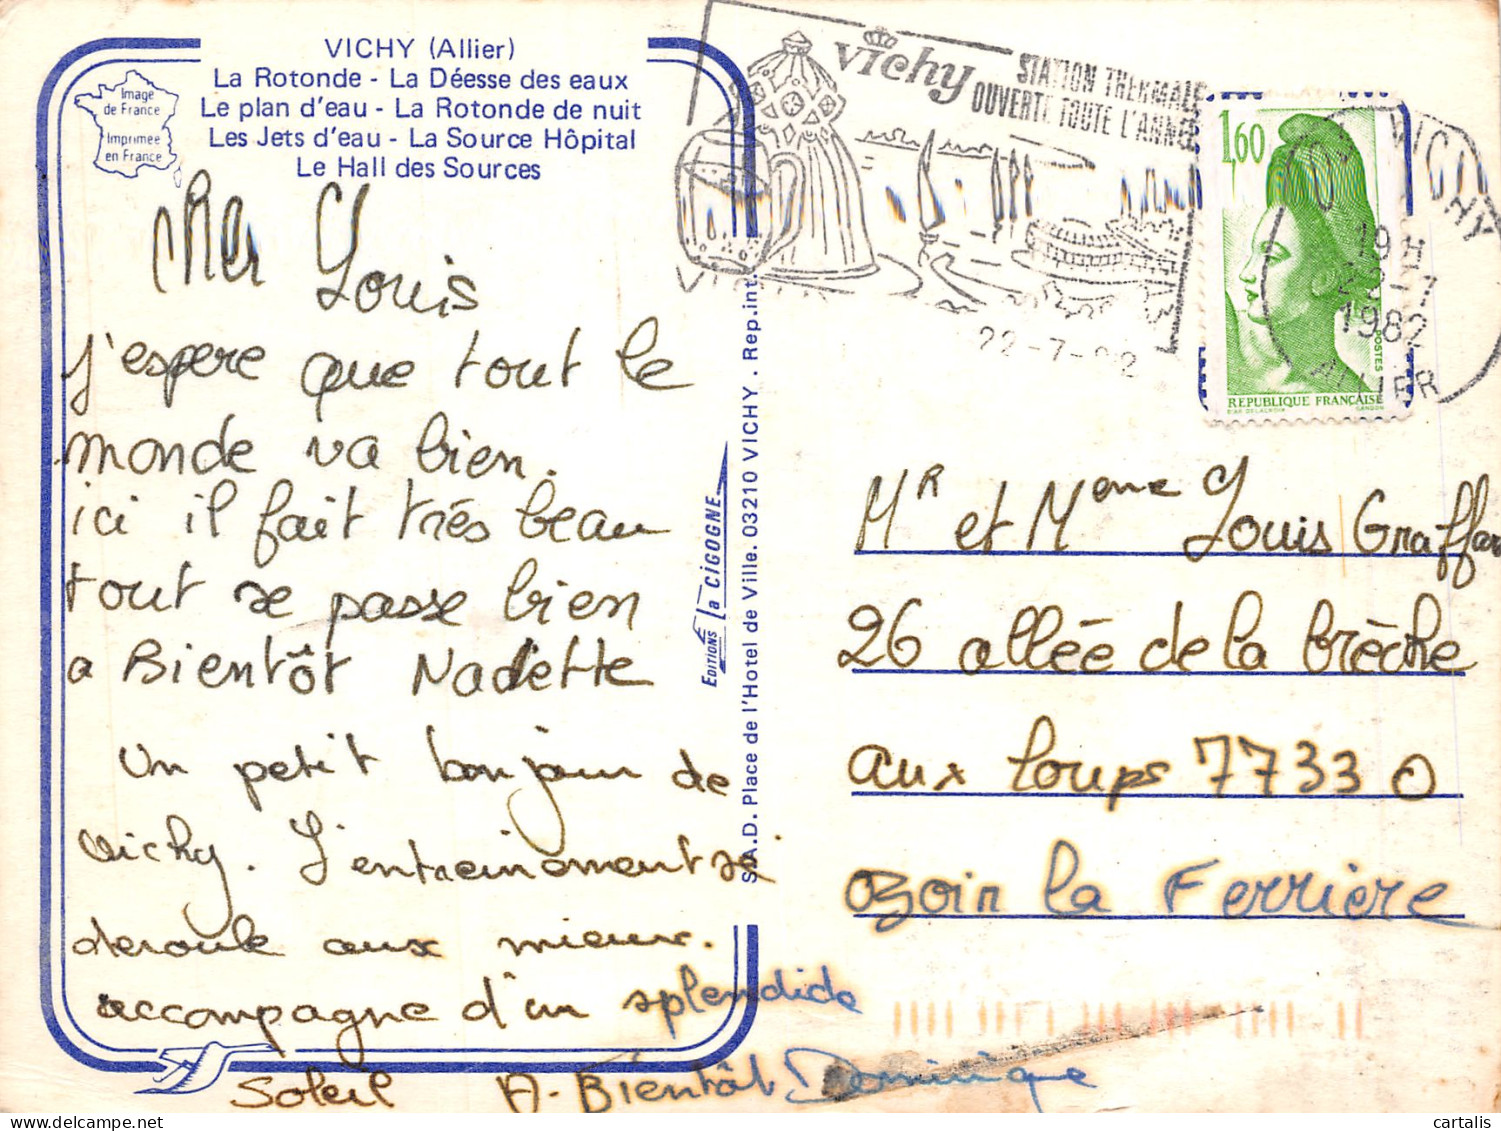 VICHY (Allier)
La Rotonde - La Déesse des eaux
Le plan d'eau - La Rotonde de nuit
Les Jets d'eau - La Source Hôpital
Le Hall des Sources
Image
de France
Imprimée
en France
Vichy
STATION THERMALE
OUVERTE TOUTE L'ANNÉE
22-7-
1,60
POSTES
REPUBLIQUE FRANÇAISE
D'AP. DELACROIX GANDON
VICHY
19 H
22-7
1982
ALLIER
cher Louis
j'espere que tout le
monde va bien.
ici il fait très beau
tout se passe bien
a Bientôt Nadette
Un petit bonjour de
Vichy. L'entrainement se
deroule aux mieux.
accompagne d'un splendide
Soleil A-Bientôt Dominique
EDITIONS la CIGOGNE
S.A.D. Place de l'Hotel de Ville. 03210 VICHY . Rep.int.
Mr et Meme Louis Graffar
26 allée de la brèche
aux loups 77330
ozoir la Ferriere
cartalis